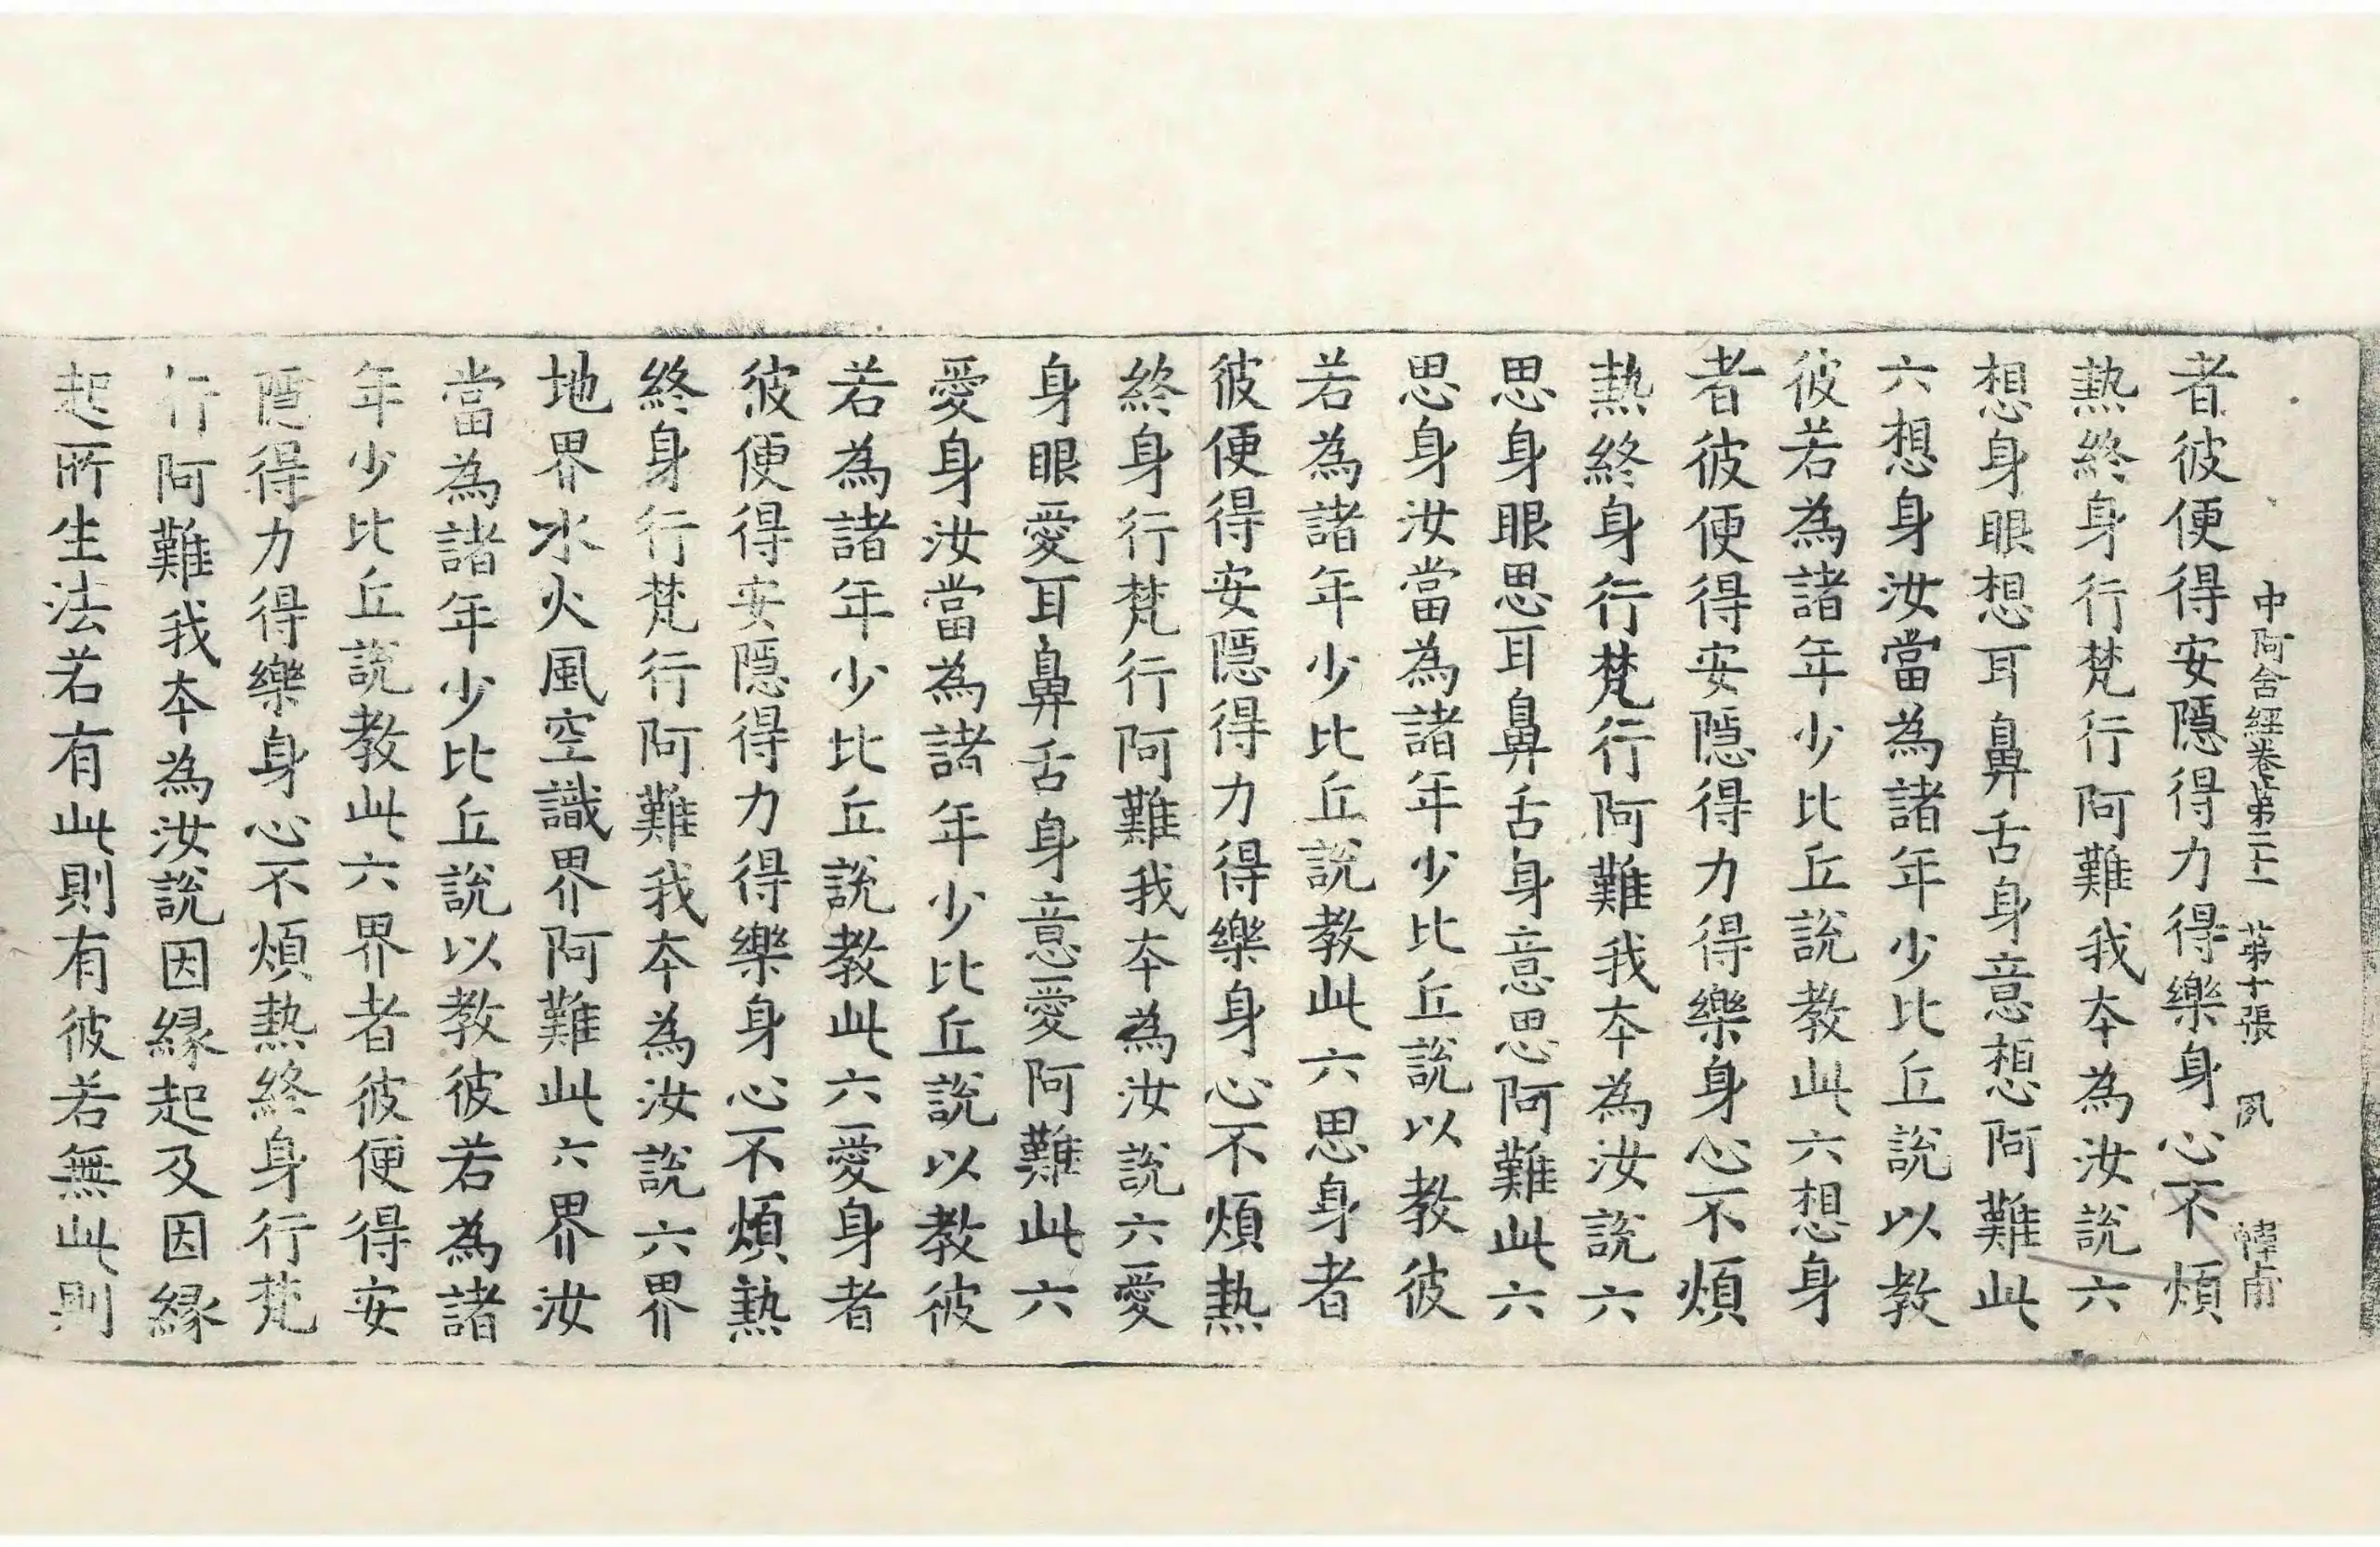 中阿含經卷第二十一 第十張 夙 幃甫
者彼便得安隱得力得樂身心不煩
熱終身行梵行阿難我本為汝說六
想身眼想耳鼻舌身意想阿難此
六想身汝當為諸年少比丘說以教
彼若為諸年少比丘說教此六想身
者彼便得安隱得力得樂身心不煩
熱終身行梵行阿難我本為汝說六
思身眼思耳鼻舌身意思阿難此六
思身汝當為諸年少比丘說以教彼
若為諸年少比丘說教此六思身者
彼便得安隱得力得樂身心不煩熱
終身行梵行阿難我本為汝說六愛
身眼愛耳鼻舌身意愛阿難此六
愛身汝當為諸年少比丘說以教彼
若為諸年少比丘說教此六愛身者
彼便得安隱得力得樂身心不煩熱
終身行梵行阿難我本為汝說六界
地界水火風空識界阿難此六界汝
當為諸年少比丘說以教彼若為諸
年少比丘說教此六界者彼便得安
隱得力得樂身心不煩熱終身行梵
行阿難我本為汝說因緣起及因緣
起所生法若有此則有彼若無此則